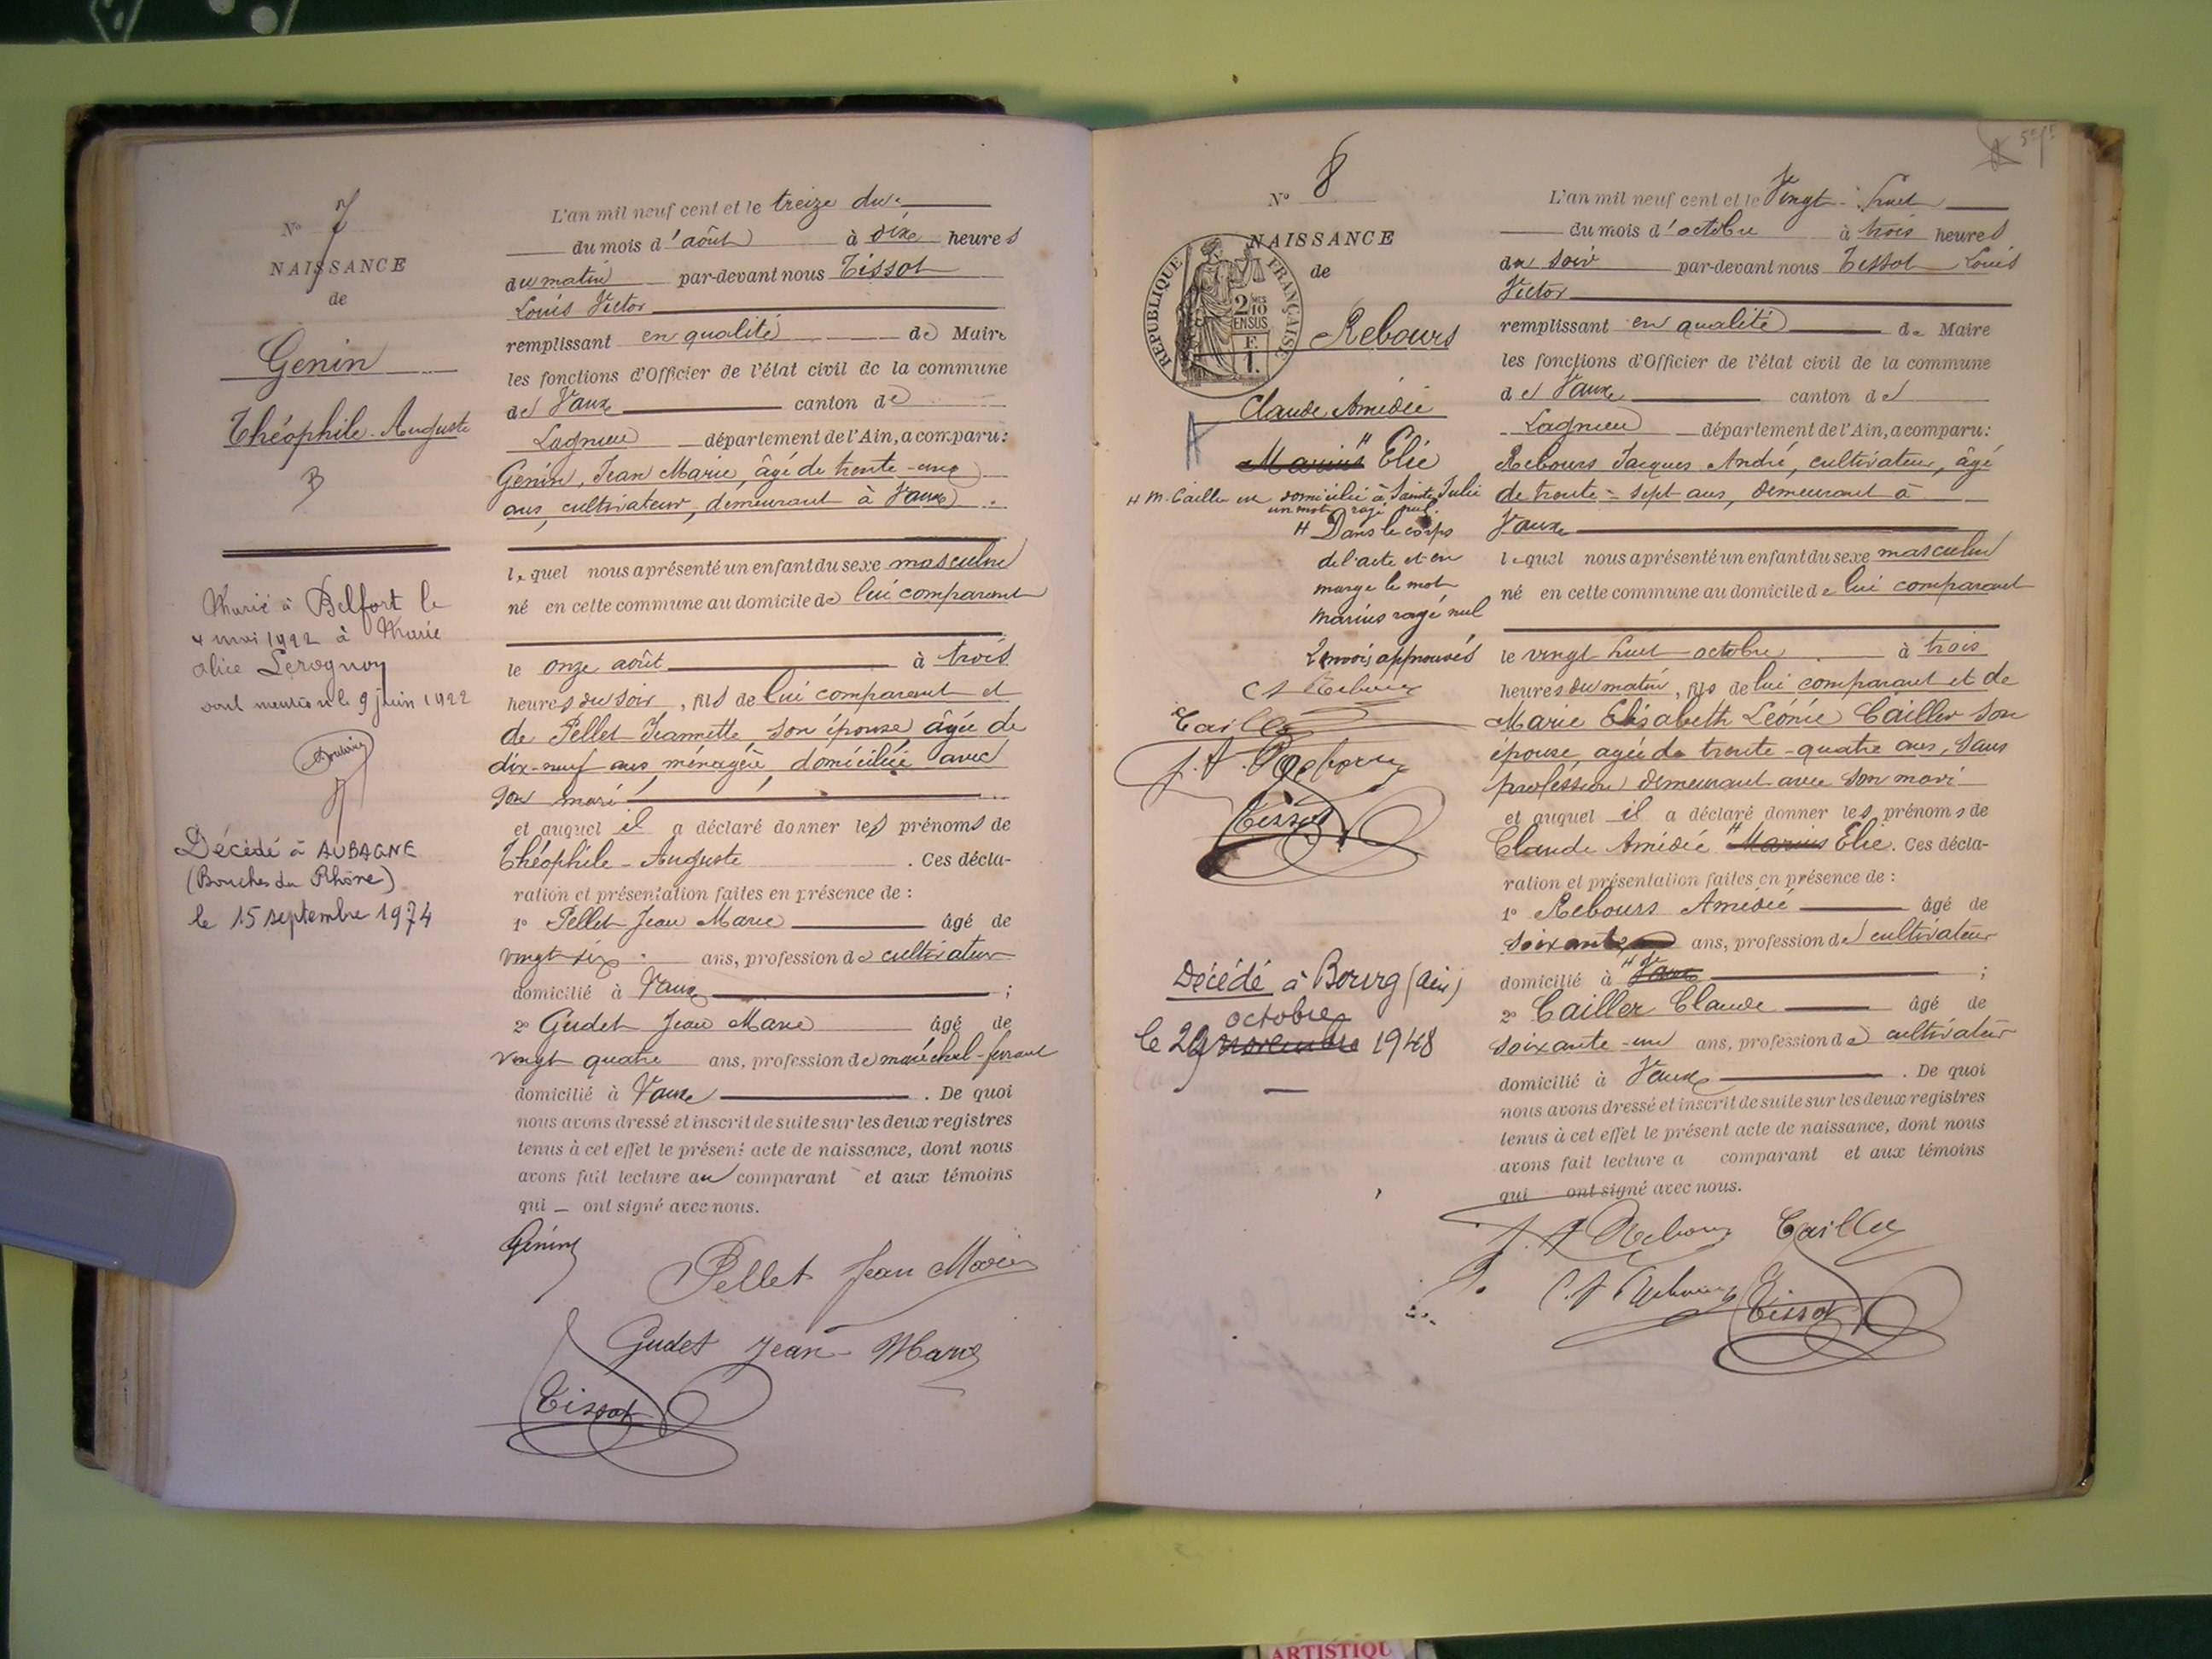 N° 7
NAISSANCE
de
Genin
Théophile-Auguste
B
Marié à Belfort le
4 mai 1922 à Marie
Alice
mention le 9 juin 1922
Décédé à AUBAGNE
(Bouches du Rhône)
le 15 septembre 1974
L'an mil neuf cent et le treize du
du mois d'août à dix heures
du matin par-devant nous Tissot
Louis Victor
remplissant en qualité de Maire
les fonctions d'Officier de l'état civil de la commune
de Vaux canton de
Lagnieu département de l'Ain, a comparu:
Genin, Jean Marie, âgé de trente-cinq
ans, cultivateur, demeurant à Vaux
lequel nous a présenté un enfant du sexe masculin
né en cette commune au domicile de lui comparant
le onze août à trois
heures du soir, fils de lui comparant et
de Pellet Jeannette son épouse, âgée de
dix-neuf ans, ménagère, domiciliée avec
son mari
et auquel il a déclaré donner les prénoms de
Théophile-Auguste. Ces décla-
ration et présentation faites en présence de :
1° Pellet Jean Marie âgé de
vingt six ans, profession de cultivateur
domicilié à Vaux ;
2° Gudet Jean Marie âgé de
vingt quatre ans, profession de maréchal-ferrant
domicilié à Vaux. De quoi
nous avons dressé et inscrit de suite sur les deux registres
tenus à cet effet le présent acte de naissance, dont nous
avons fait lecture au comparant et aux témoins
qui — ont signé avec nous.
Genin
Pellet Jean Marie
Gudet Jean-Marie
Tissot
N° 8
NAISSANCE
de
REPUBLIQUE FRANÇAISE
2/10 MES
EN SUS
F.
1.
Rebours
Claude Amédée
Marius Élie
H M. Cailler domicilié à Sainte Julie
un mot rayé nul.
H Dans le corps
de l'acte et en
marge le mot
marius rayé nul
2 renvois approuvés
C A Rebours
Cailler
J. A. Rebours
Tissot
Décédé à Bourg (Ain)
octobre
le 29 novembre 1948
L'an mil neuf cent et le Vingt-huit
du mois d'octobre à trois heures
du soir par-devant nous Tissot Louis
Victor
remplissant en qualité de Maire
les fonctions d'Officier de l'état civil de la commune
de Vaux canton de
Lagnieu département de l'Ain, a comparu:
Rebours Jacques André, cultivateur, âgé
de trente-sept ans, demeurant à
Vaux
lequel nous a présenté un enfant du sexe masculin
né en cette commune au domicile de lui comparant
le vingt huit octobre à trois
heures du matin, fils de lui comparant et de
Marie Elisabeth Léonie Cailler son
épouse, agée de trente-quatre ans, sans
profession demeurant avec son mari
et auquel il a déclaré donner les prénoms de
Claude Amédée H Marius Elie. Ces décla-
ration et présentation faites en présence de :
1° Rebours Amédée âgé de
soixante ans, profession de cultivateur
domicilié à H Vaux ;
2° Cailler Claude âgé de
soixante-un ans, profession de cultivateur
domicilié à Vaux. De quoi
nous avons dressé et inscrit de suite sur les deux registres
tenus à cet effet le présent acte de naissance, dont nous
avons fait lecture a comparant et aux témoins
qui ont signé avec nous.
J. A Rebours Cailler
C. A Rebours Tissot
ARTISTIQU